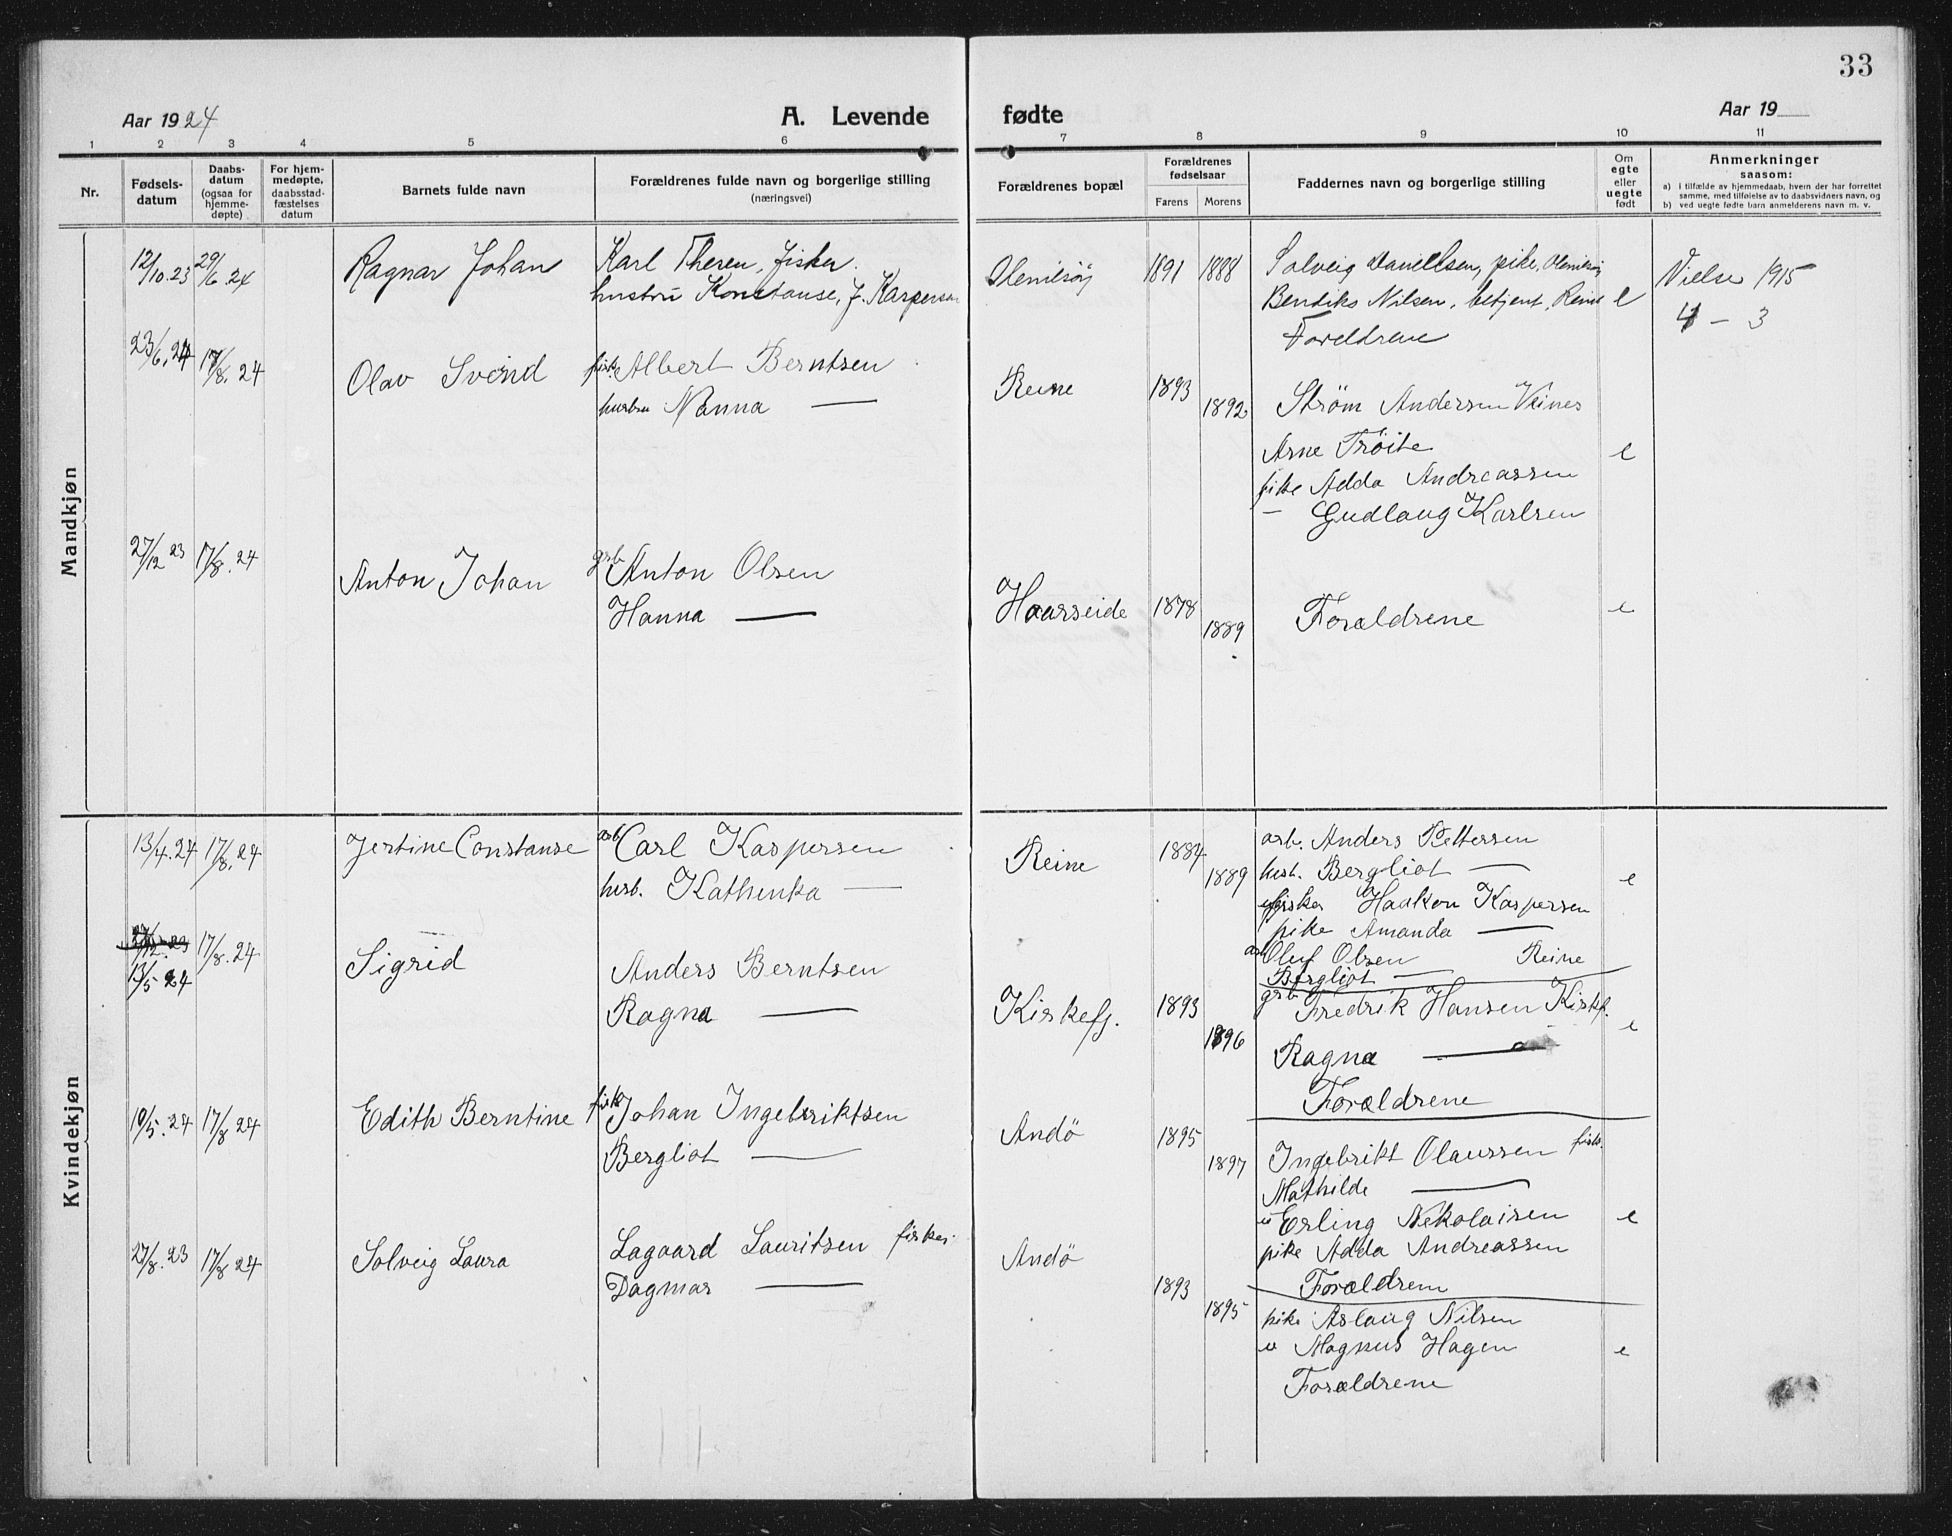 33
Aar 1924
A. Levende fødte
Aar 19
1 2 3 4 5 6 7 8 9 10 11
Nr.
Fødsels-
datum
Daabs-
datum
(ogsaa for
hjemme-
døpte)
For hjem-
medøpte,
daabsstad-
fæstelses
datum
Barnets fulde navn
Forældrenes fulde navn og borgerlige stilling
(næringsvei)
Forældrenes bopæl
Forældrenes
fødselsaar
Farens Morens
Faddernes navn og borgerlige stilling
Om
egte
eller
uegte
født
Anmerkninger
saasom:
a) i tilfælde av hjemmedaab, hvem der har forrettet
samme, med tilføielse av to daabsvidners navn, og
b) ved uegte fødte barn anmelderens navn m. v.
Mandkjøn
12/10.23 29/6.24 Ragnar Johan
Karl Theren, fisker.
hustru Konstanse, f. Kaspersen
1891 1888
Solveig Danielsen, pike,
Bendiks Nilsen, betjent, Reine
Foreldrene
e
Vielse 1915
4 – 3
23/6.24 17/8.24 Olav Svend
fisk. Albert Berntsen
hustru Nanna —
Reine 1893 1892
Strøm Andersen Veines
Arne Trôite
pike Adda Andreassen
— Gudlaug Karlsen
e
27/12 23 17/8.24 Anton Johan
grb. Anton Olsen
Hanna —
Haarseide 1878 1889
Forældrene
e
Kvindekjøn
13/4.24 17/8.24 Jertine Constanse
arb. Carl Kaspersen
hust. Kathenka —
Reine 1884 1889
arb. Anders Pettersen
hust. Bergliot —
fisker Haakon Kaspersen
pike Amanda —
arb. Oluf Olsen Reine
Bergliot —
e
27/12 23
13/5 24 17/8.24 Sigrid
Anders Berntsen
Ragna —
Kirkefj. 1893 1896
grb. Fredrik Hansen Kirkf.
Ragna —
Forældrene
e
10/5.24 17/8 24 Edith Berntine
fisk. Johan Ingebriktsen
Bergliot —
Andö 1895 1897
Ingebrikt Olaussen fisk.
Mathilde —
u Erling Nikolaisen
pike Adda Andreassen
Forældrene
e
27/8.23 17/8 24 Solveig Laura
Lagaard Lauritsen fisker.
Dagmar —
Andö 1893 1895
pike Aslaug Nilsen
u Magnus Hagen
Forældrene
e